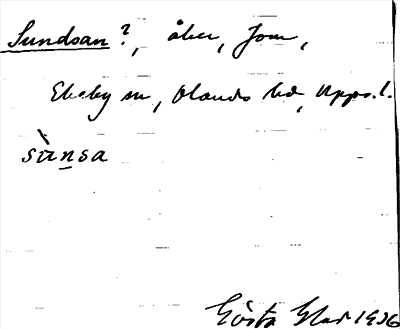 Sundsan?, åker, Jom,
Ekeby sn, Olands hd, Upps.l.
sùnsa
Gösta 1936